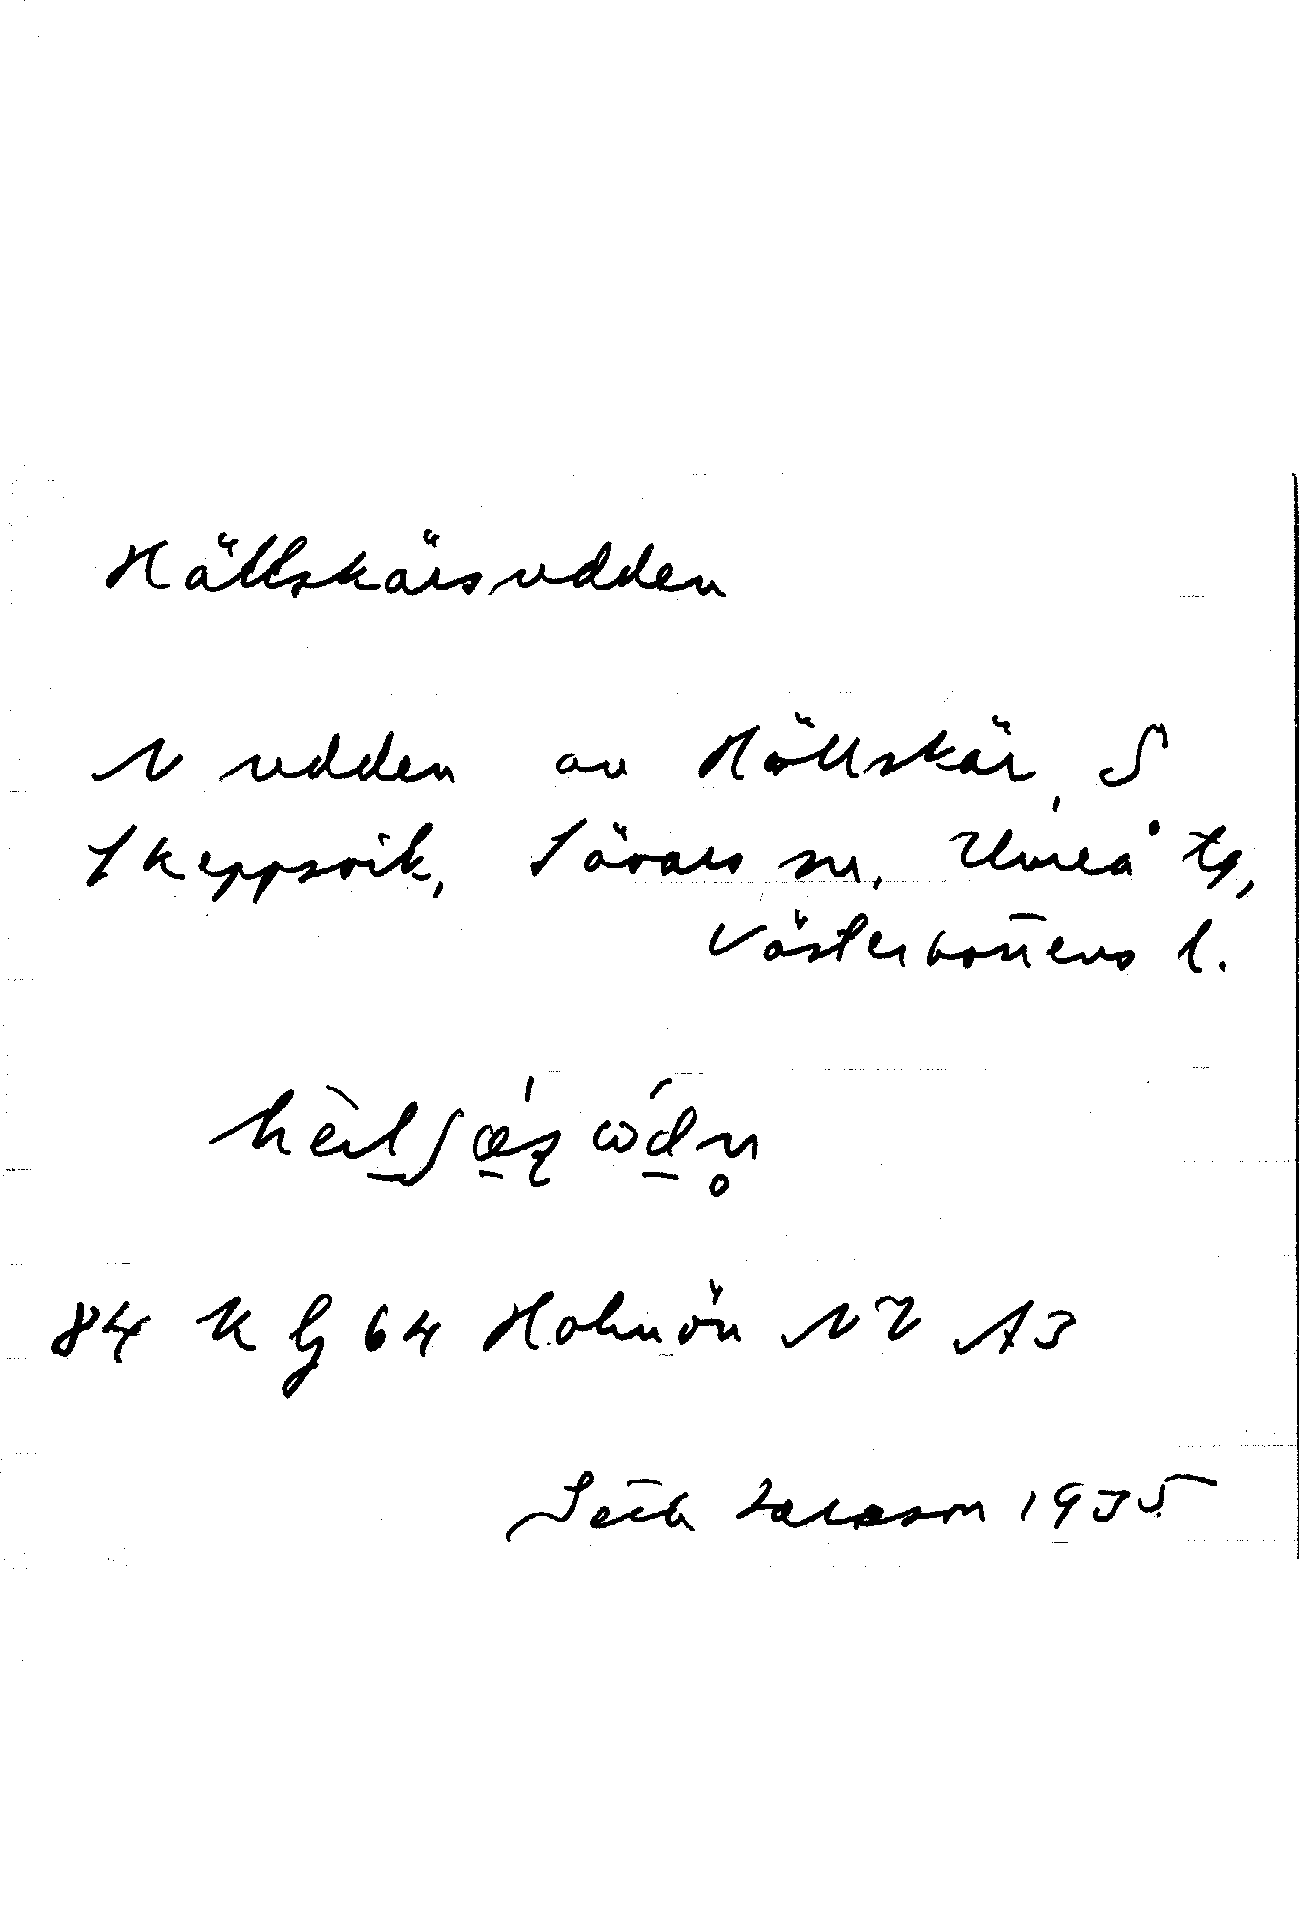 Hällskärsudden
N udden av Hällskär, S
Skeppsvik, Sävars sn, Umeå tg,
Västerbottens l.
84 K Gj 64 Holmön NV A3
Seth Larsson 1935